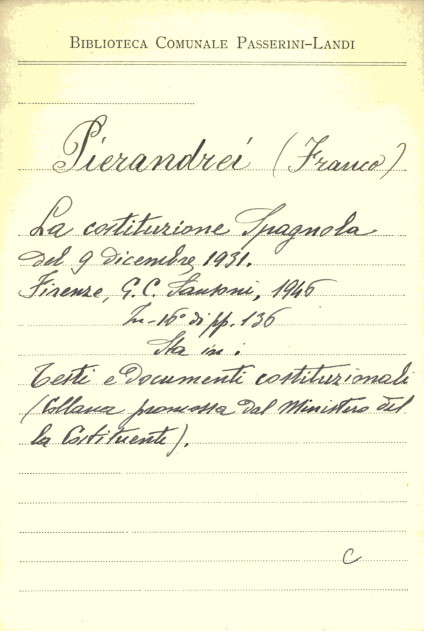 BIBLIOTECA COMUNALE PASSERINI-LANDI
Pierandrei (Franco)
La costituzione Spagnola
del 9 dicembre 1931.
Firenze, G.C. Sansoni, 1946
In-16° di pp. 136
Sta in:
Testi e documenti costituzionali
(Collana promossa dal Ministero del
la Costituente).
C